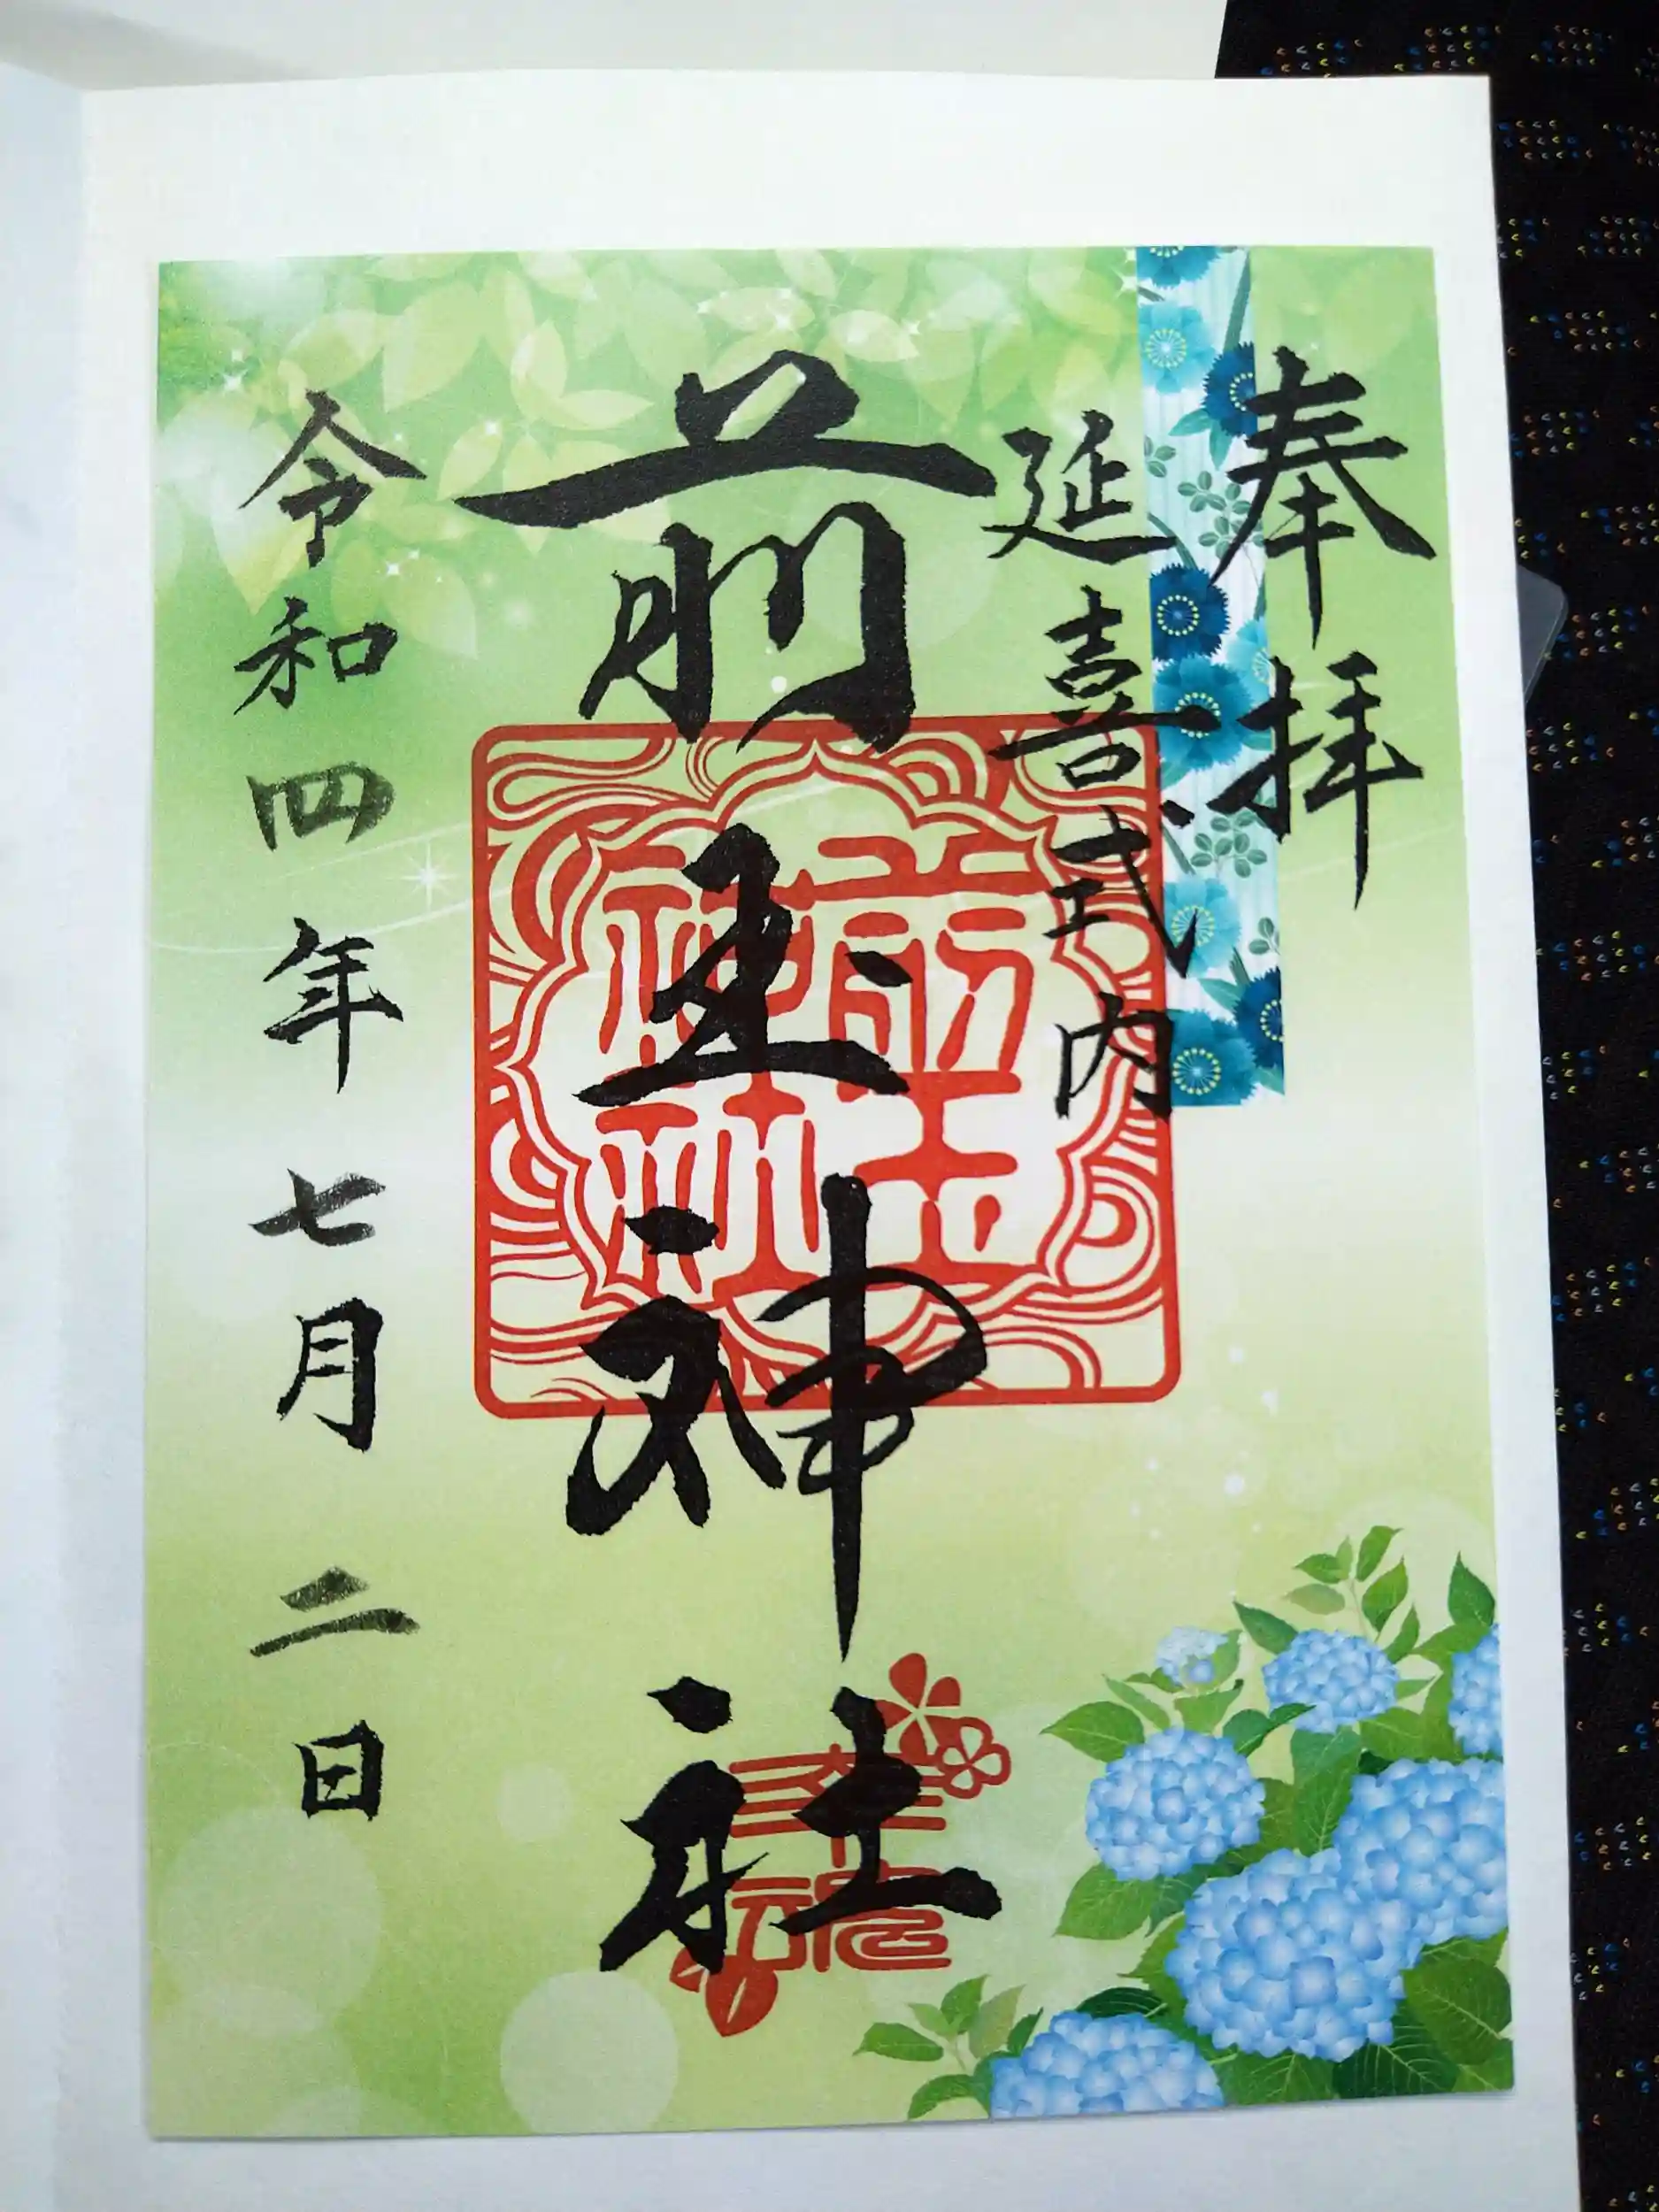 奉拝
延喜式内
前玉神社
前玉神社
令和四年七月二日